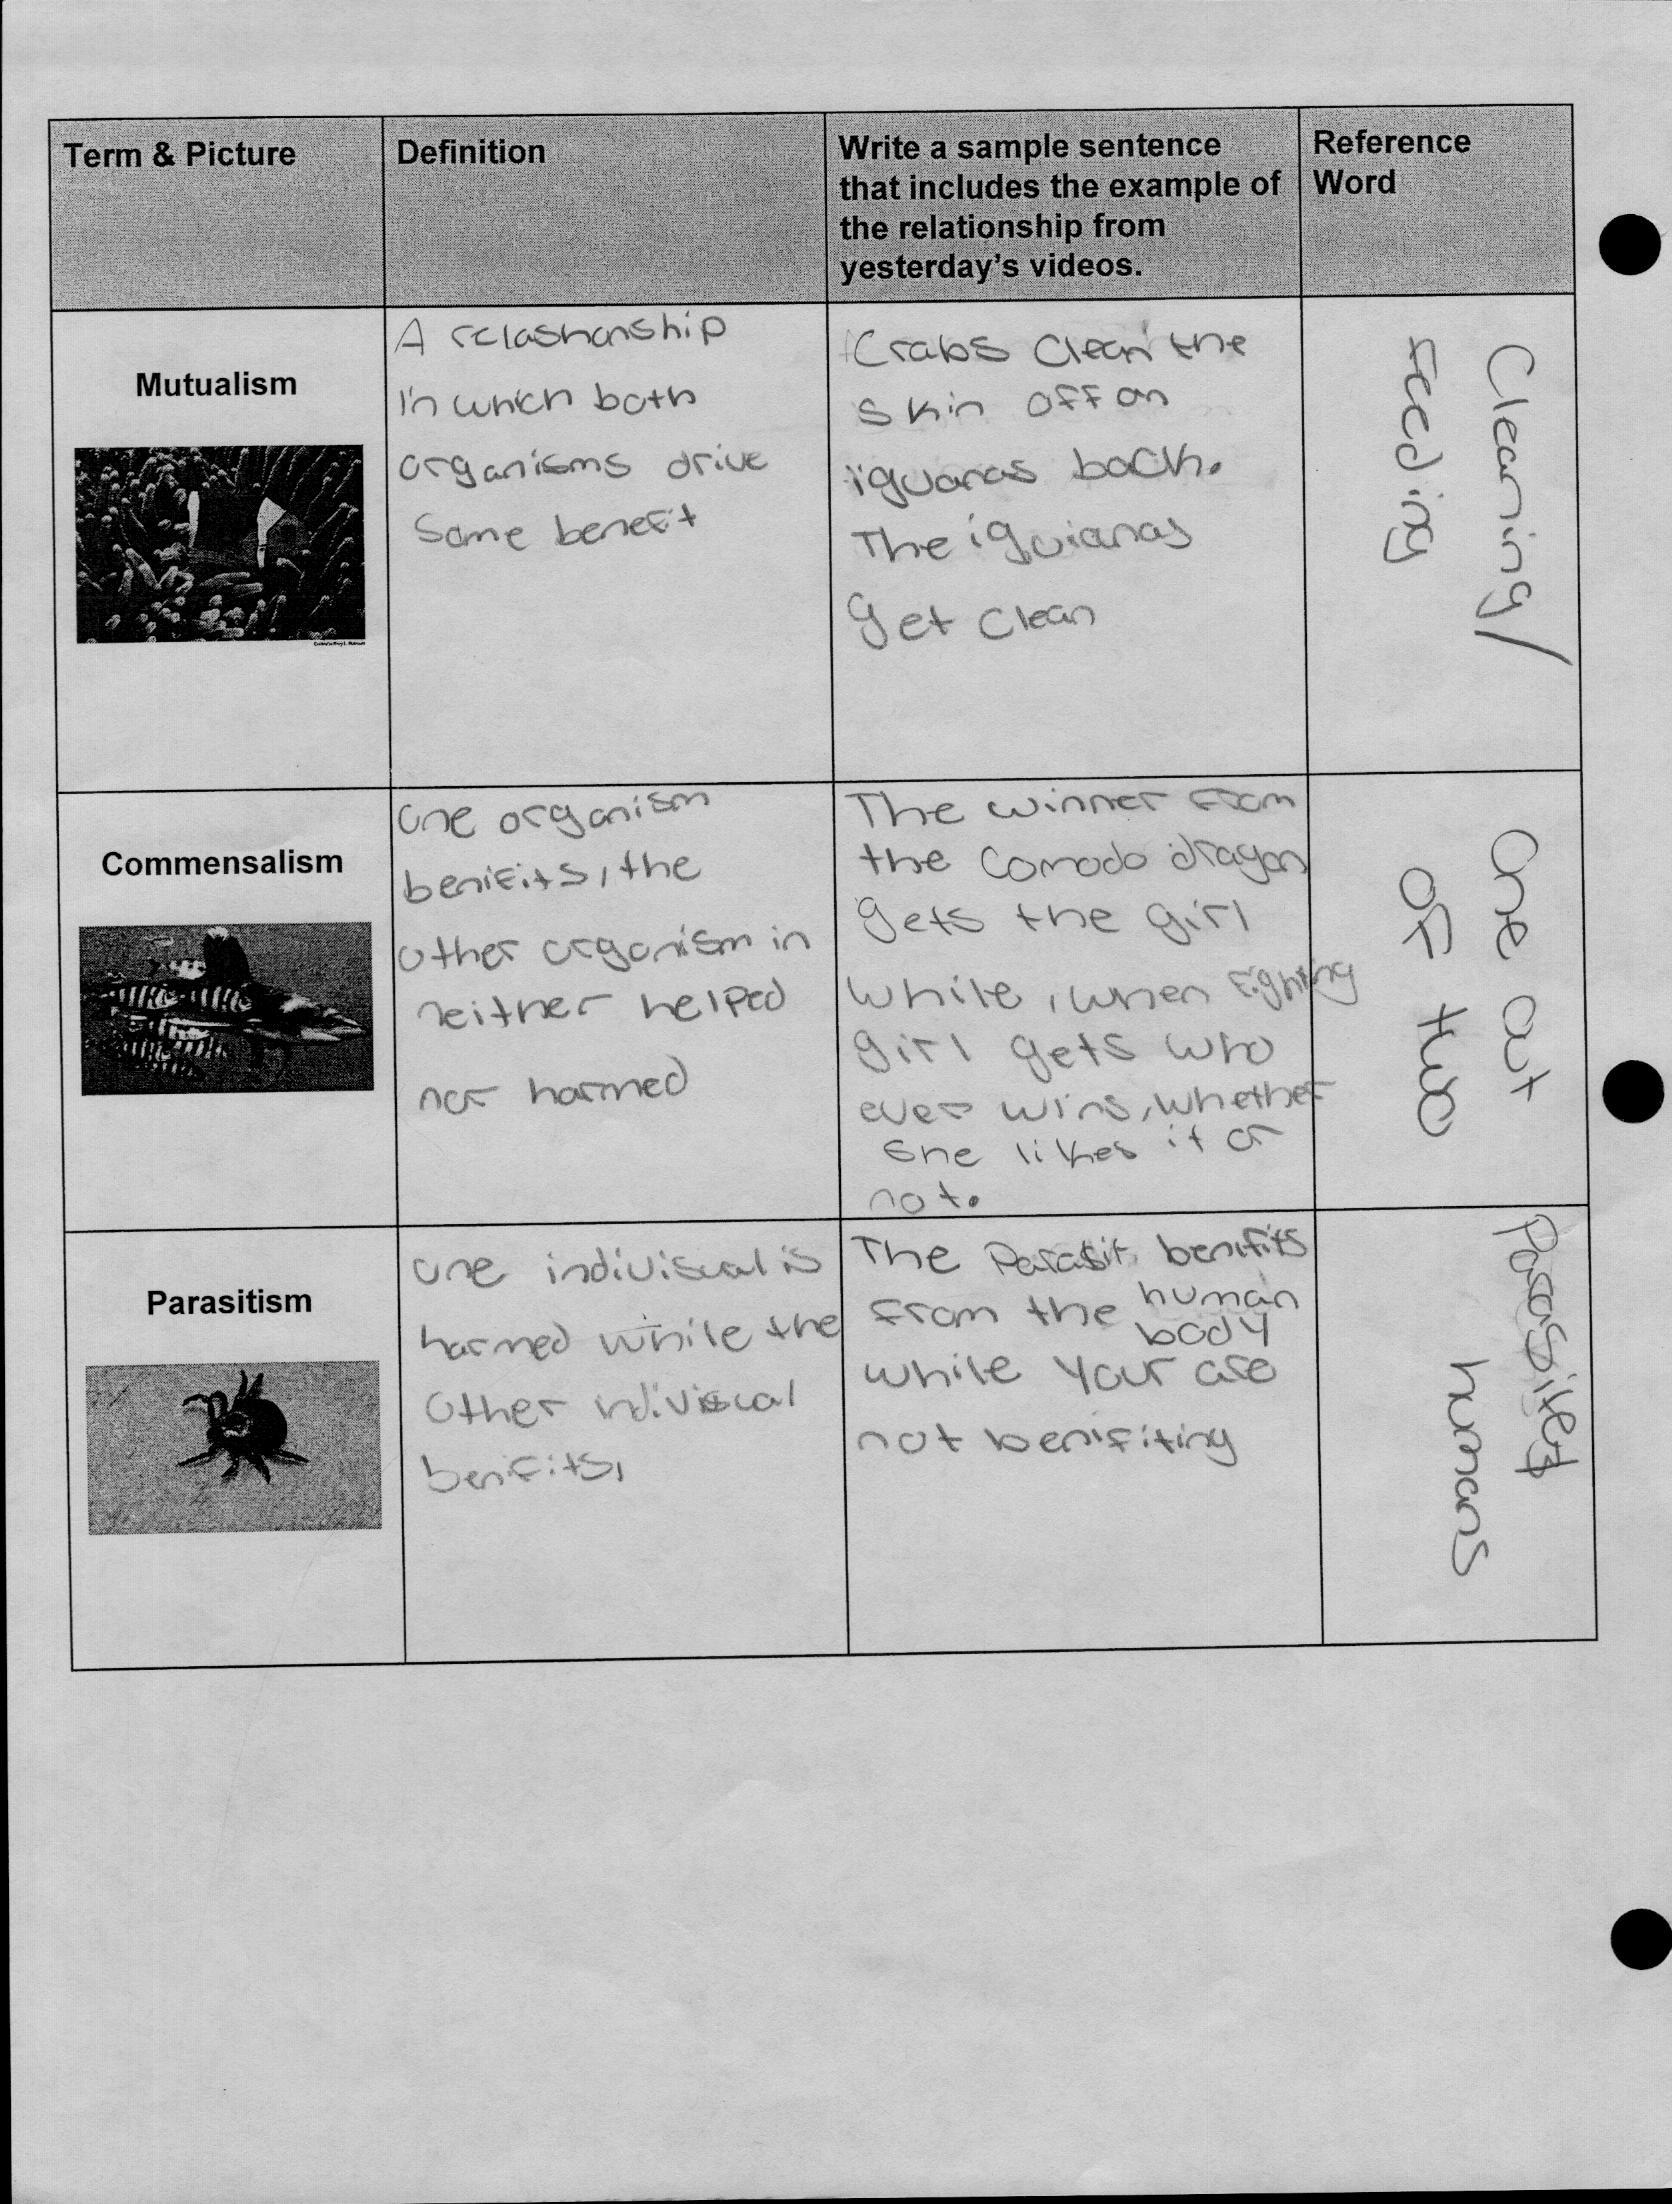 Term & Picture
Definition
Write a sample sentence
that includes the example of
the relationship from
yesterday's videos.
Reference
Word
Mutualism
A relashonship
in which both
organisms drive
some benefit
Crabs clean the
skin off an
iguanas back.
The iguianas
get clean
Cleaning/
feeding
Commensalism
one organism
benifits, the
other organism in
neither helped
nor harmed
The winner from
the Comodo dragon
gets the girl
while, when fighting
girl gets who
ever wins, whether
she likes it or
not.
One out
of two
Parasitism
one indiviscual is
harmed while the
other indiviscual
benifits,
The Parasit benifits
from the human
body
while your are
not benifiting
Parasites
humans